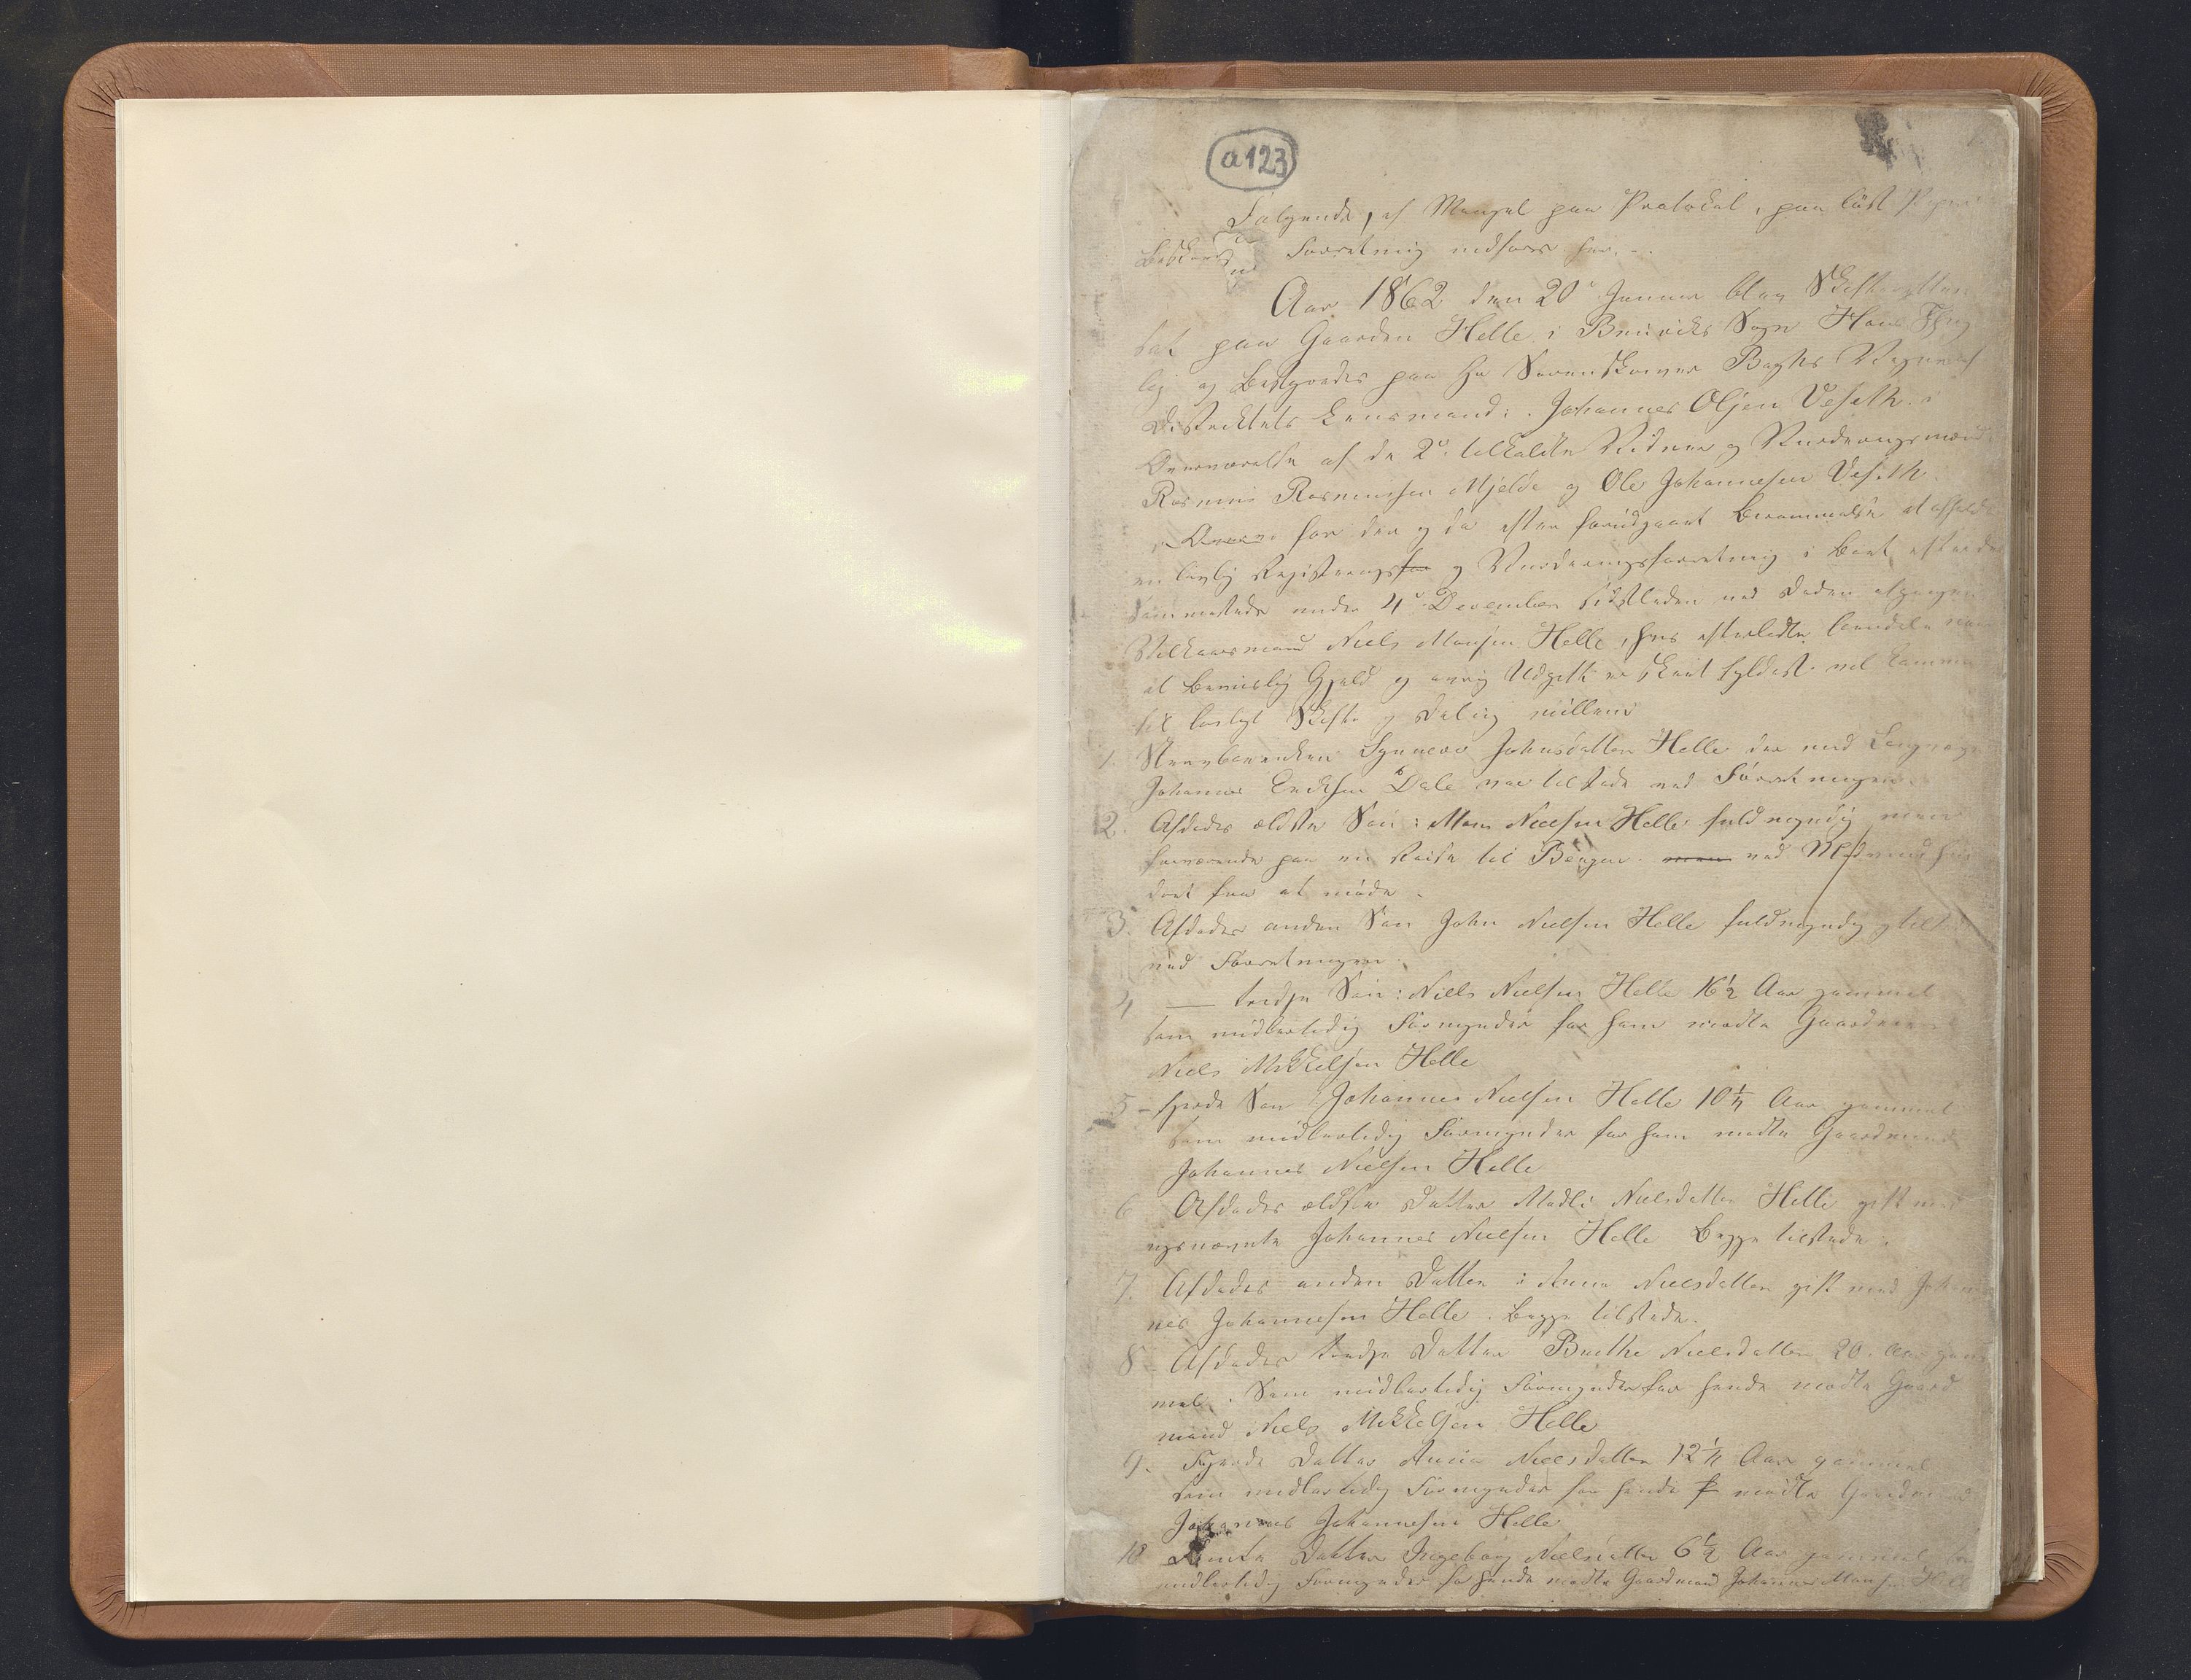 a 123
Følgende, af Mangel paa Protokol, paa løst Papir
beskrevne Forretning indføres her. -
Aar 1862 den 20de Januar blev Skifteretten
sat paa Gaarden Helle i Bruviks Sogn Hans Thing
lag og betjent paa Hr Sorenskriver Vegne af
Distriktets Lensmand: Johannes Olsen Veseth i
Overværelse af de 2de tilkaldte Vidner og Vurderingsmænd
Rasmus Rasmussen Mjelde og Ole Johannesen Veseth
for der og da efter forudgaaet Berammelse at afholde
en lovlig Registrerings for og Vurderingsforretning i Boet efter den
sammesteds under 4de December sidstleden ved Døden afgangne
Vilkaarsmand Niels Monsen Helle, hvis efterladte Eiendele
at bevislig Gjæld og øvrig Udgift er skeet Fyldest vil komme
til lovligt Skifte og Deling mellem
1. Stervboenken Synneve Johnsdatter Helle der med Laugværge
Johannes Eriksen Dale var tilstede ved Forretningen.
2. Afdødes ældste Søn: Mons Nielsen Helle fuldmyndig men
fraværende paa en Reise til Bergen. men ved Modvind hin
dret fra at møde.
3. Afdødes anden Søn John Nielsen Helle fuldmyndig og tilst
ved Forretningen.
4 — tredje Søn: Niels Nielsen Helle 16½ Aar gammel
som midlertidig Formynder for ham mødte Gaardmand
Niels Mikkelsen Helle
5 - fjerde Søn: Johannes Nielsen Helle 10¼ Aar gammel
som midlertidig Formynder for ham mødte Gaardmand
Johannes Nielsen Helle
6 Afdødes ældste Datter Madli Nielsdatter Helle gift med
ugsnævnte Johannes Nielsen Helle begge tilstede.
7. Afdødes anden Datter: Anna Nielsdatter gift med Johan
nes Johannesen Helle. begge tilstede.
8 - Afdødes tredje Datter Brethe Nielsdatter 20. Aar gam
mel. Som midlertidig Formynder for hende mødte Gaard
mand Niels Mikkelsen Helle
9. Fjerde Datter Anna Nielsdatter 12¼ Aar gammel
som midlertidig Formynder for hende f mødte Gaardmand
Johannes Johannesen Helle
10 Femte Datter Ingeborg Nielsdatter 6½ Aar gammel
midlertidig Formynder for hende mødte Gaardmand Johannes Monsen Helle